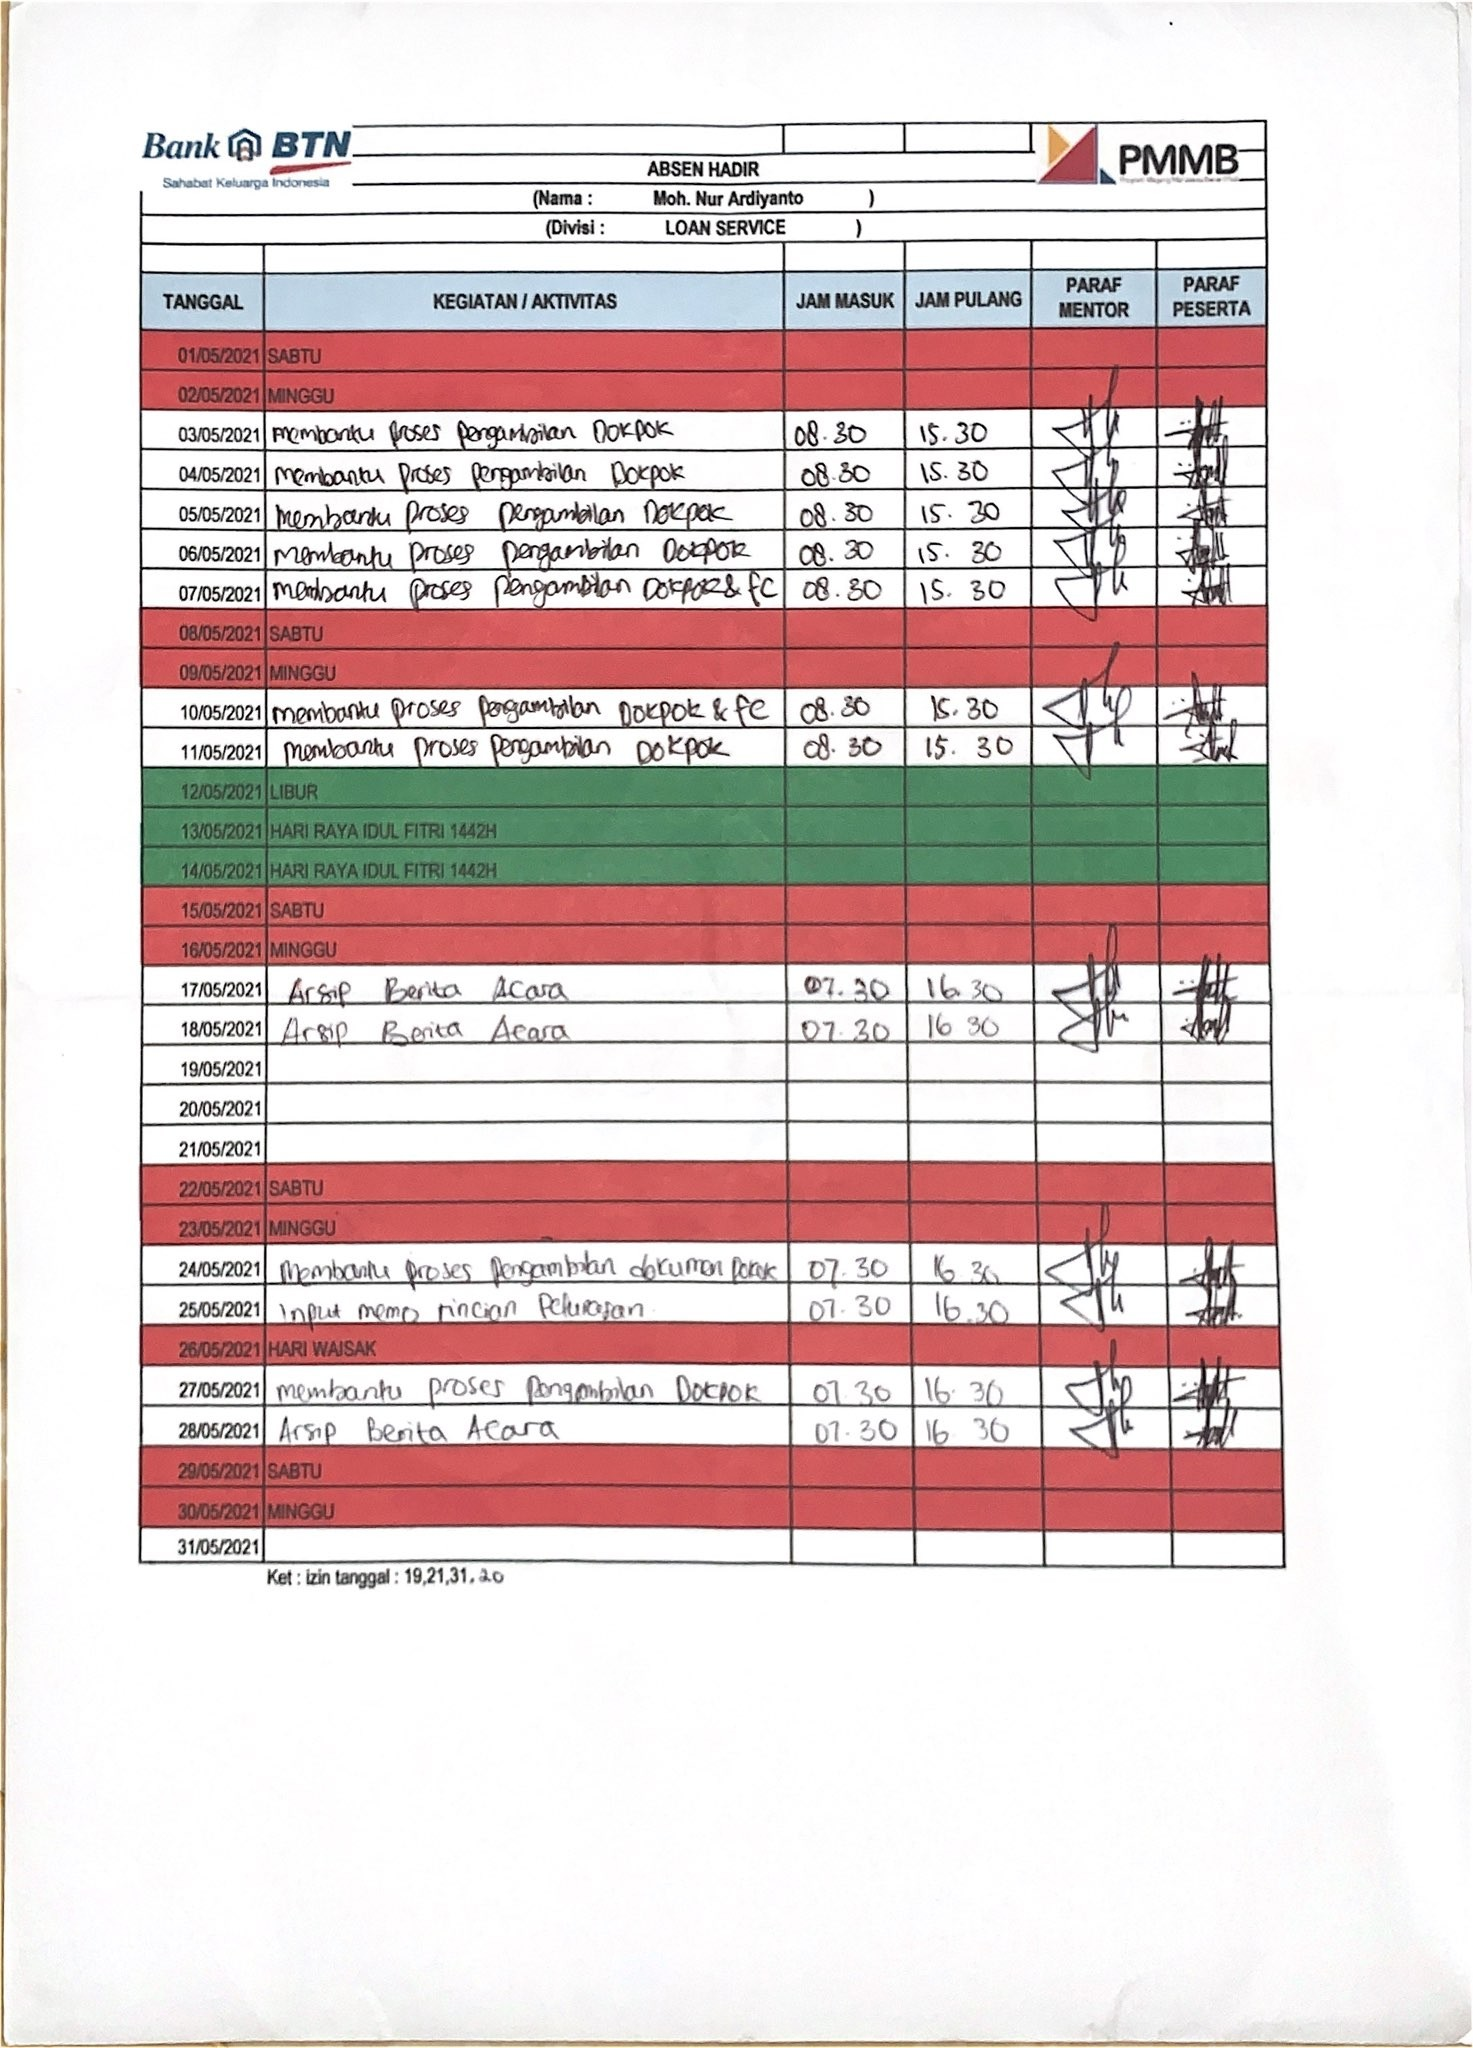 Bank BTN
Sahabat Keluarga Indonesia
PMMB
ABSEN HADIR
(Nama : Moh. Nur Ardiyanto )
(Divisi : LOAN SERVICE )
TANGGAL KEGIATAN / AKTIVITAS JAM MASUK JAM PULANG PARAF MENTOR PARAF PESERTA
01/05/2021 SABTU
02/05/2021 MINGGU
03/05/2021 membantu proses pengambilan DOKPOK 08.30 15.30
04/05/2021 membantu proses pengambilan DOKPOK 08.30 15.30
05/05/2021 membantu proses pengambilan DOKPOK 08.30 15.30
06/05/2021 membantu proses pengambilan DOKPOK 08.30 15.30
07/05/2021 membantu proses pengambilan DOKPOK & fc 08.30 15.30
08/05/2021 SABTU
09/05/2021 MINGGU
10/05/2021 membantu proses pengambilan DOKPOK & fc 08.30 15.30
11/05/2021 membantu proses pengambilan DOKPOK 08.30 15.30
12/05/2021 LIBUR
13/05/2021 HARI RAYA IDUL FITRI 1442H
14/05/2021 HARI RAYA IDUL FITRI 1442H
15/05/2021 SABTU
16/05/2021 MINGGU
17/05/2021 Arsip Berita Acara 07.30 16.30
18/05/2021 Arsip Berita Acara 07.30 16 30
19/05/2021
20/05/2021
21/05/2021
22/05/2021 SABTU
23/05/2021 MINGGU
24/05/2021 Membantu proses pengambilan dokumen pokok 07.30 16.30
25/05/2021 Input memo rincian Pelunasan 07.30 16.30
26/05/2021 HARI WAISAK
27/05/2021 membantu proses pengambilan DOKPOK 07.30 16.30
28/05/2021 Arsip Berita Acara 07.30 16.30
29/05/2021 SABTU
30/05/2021 MINGGU
31/05/2021
Ket : izin tanggal : 19,21,31.20